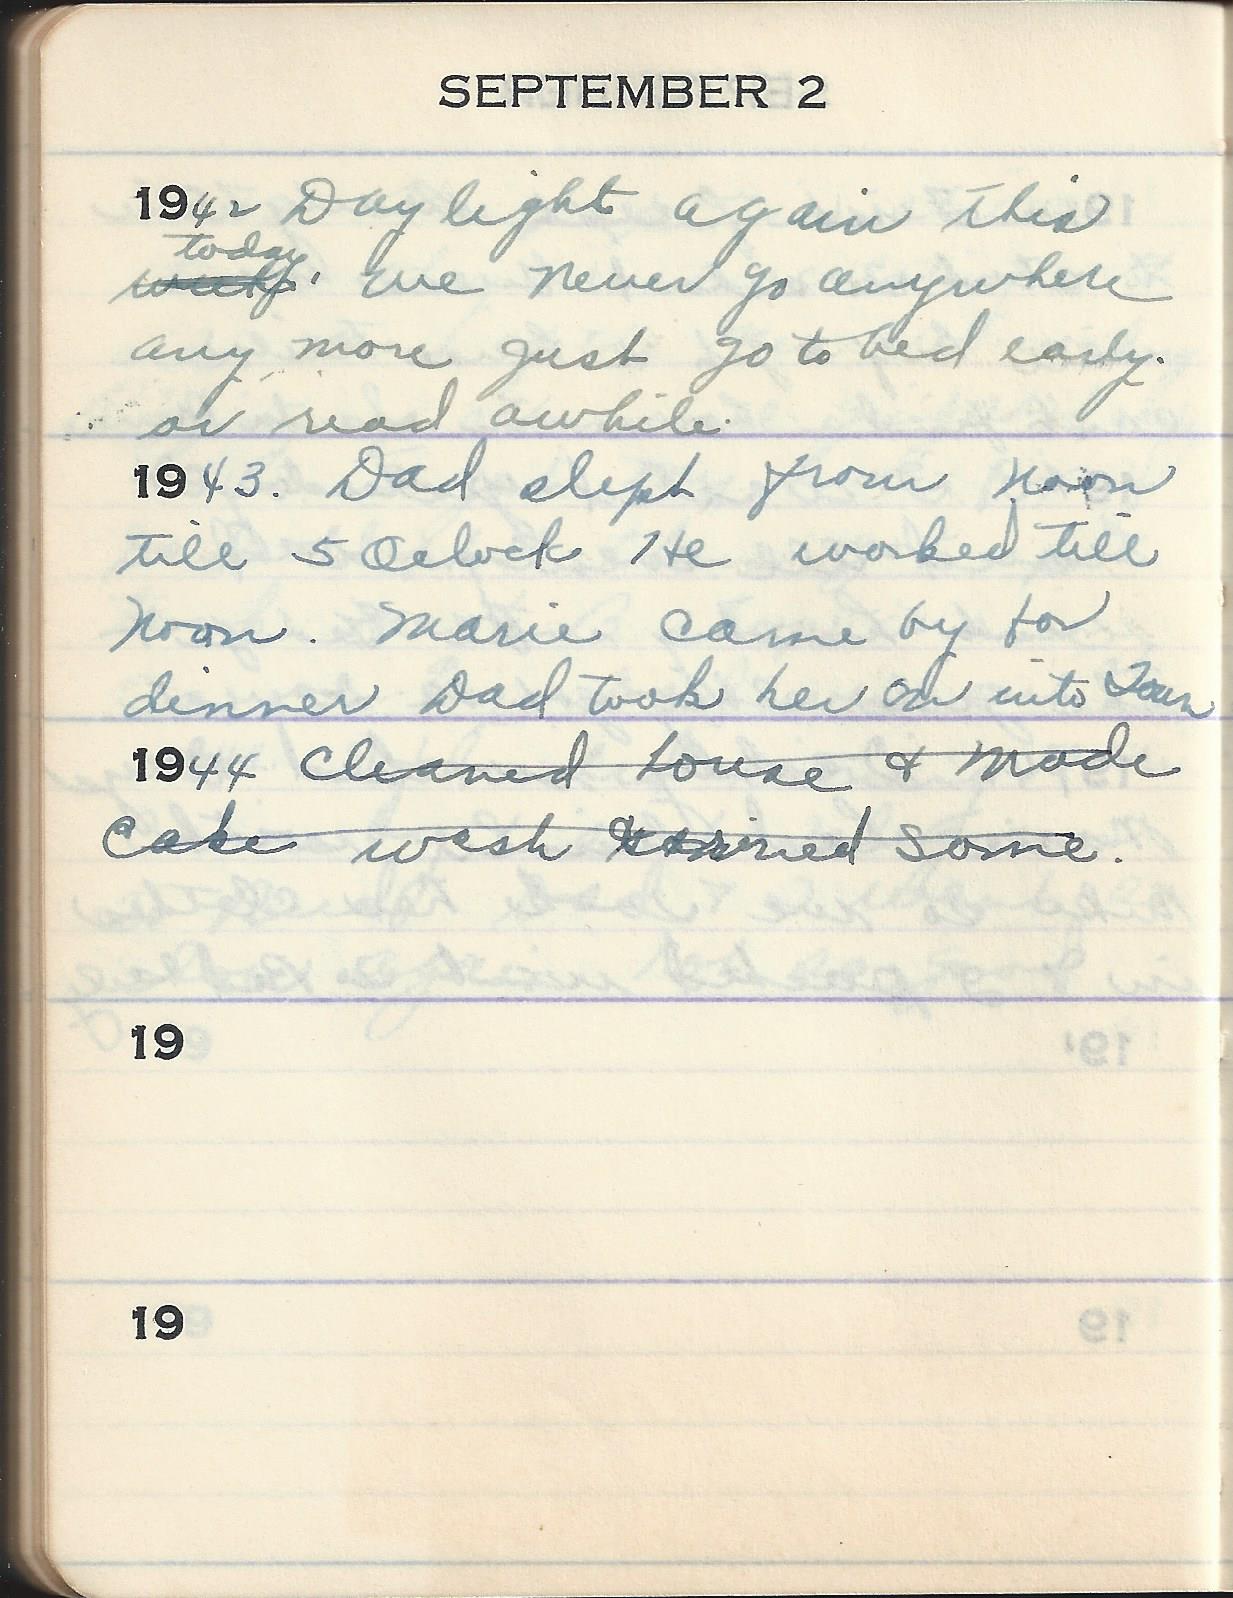 SEPTEMBER 2
1942 Daylight again this
today
week. we never go anywhere
any more just go to bed early.
or read awhile.
1943. Dad slept from noon
till 5 Oclock He worked till
noon. Marie came by for
dinner Dad took her on into Town
1944 Cleaned house & made
Cake wash ironed some.
19
19